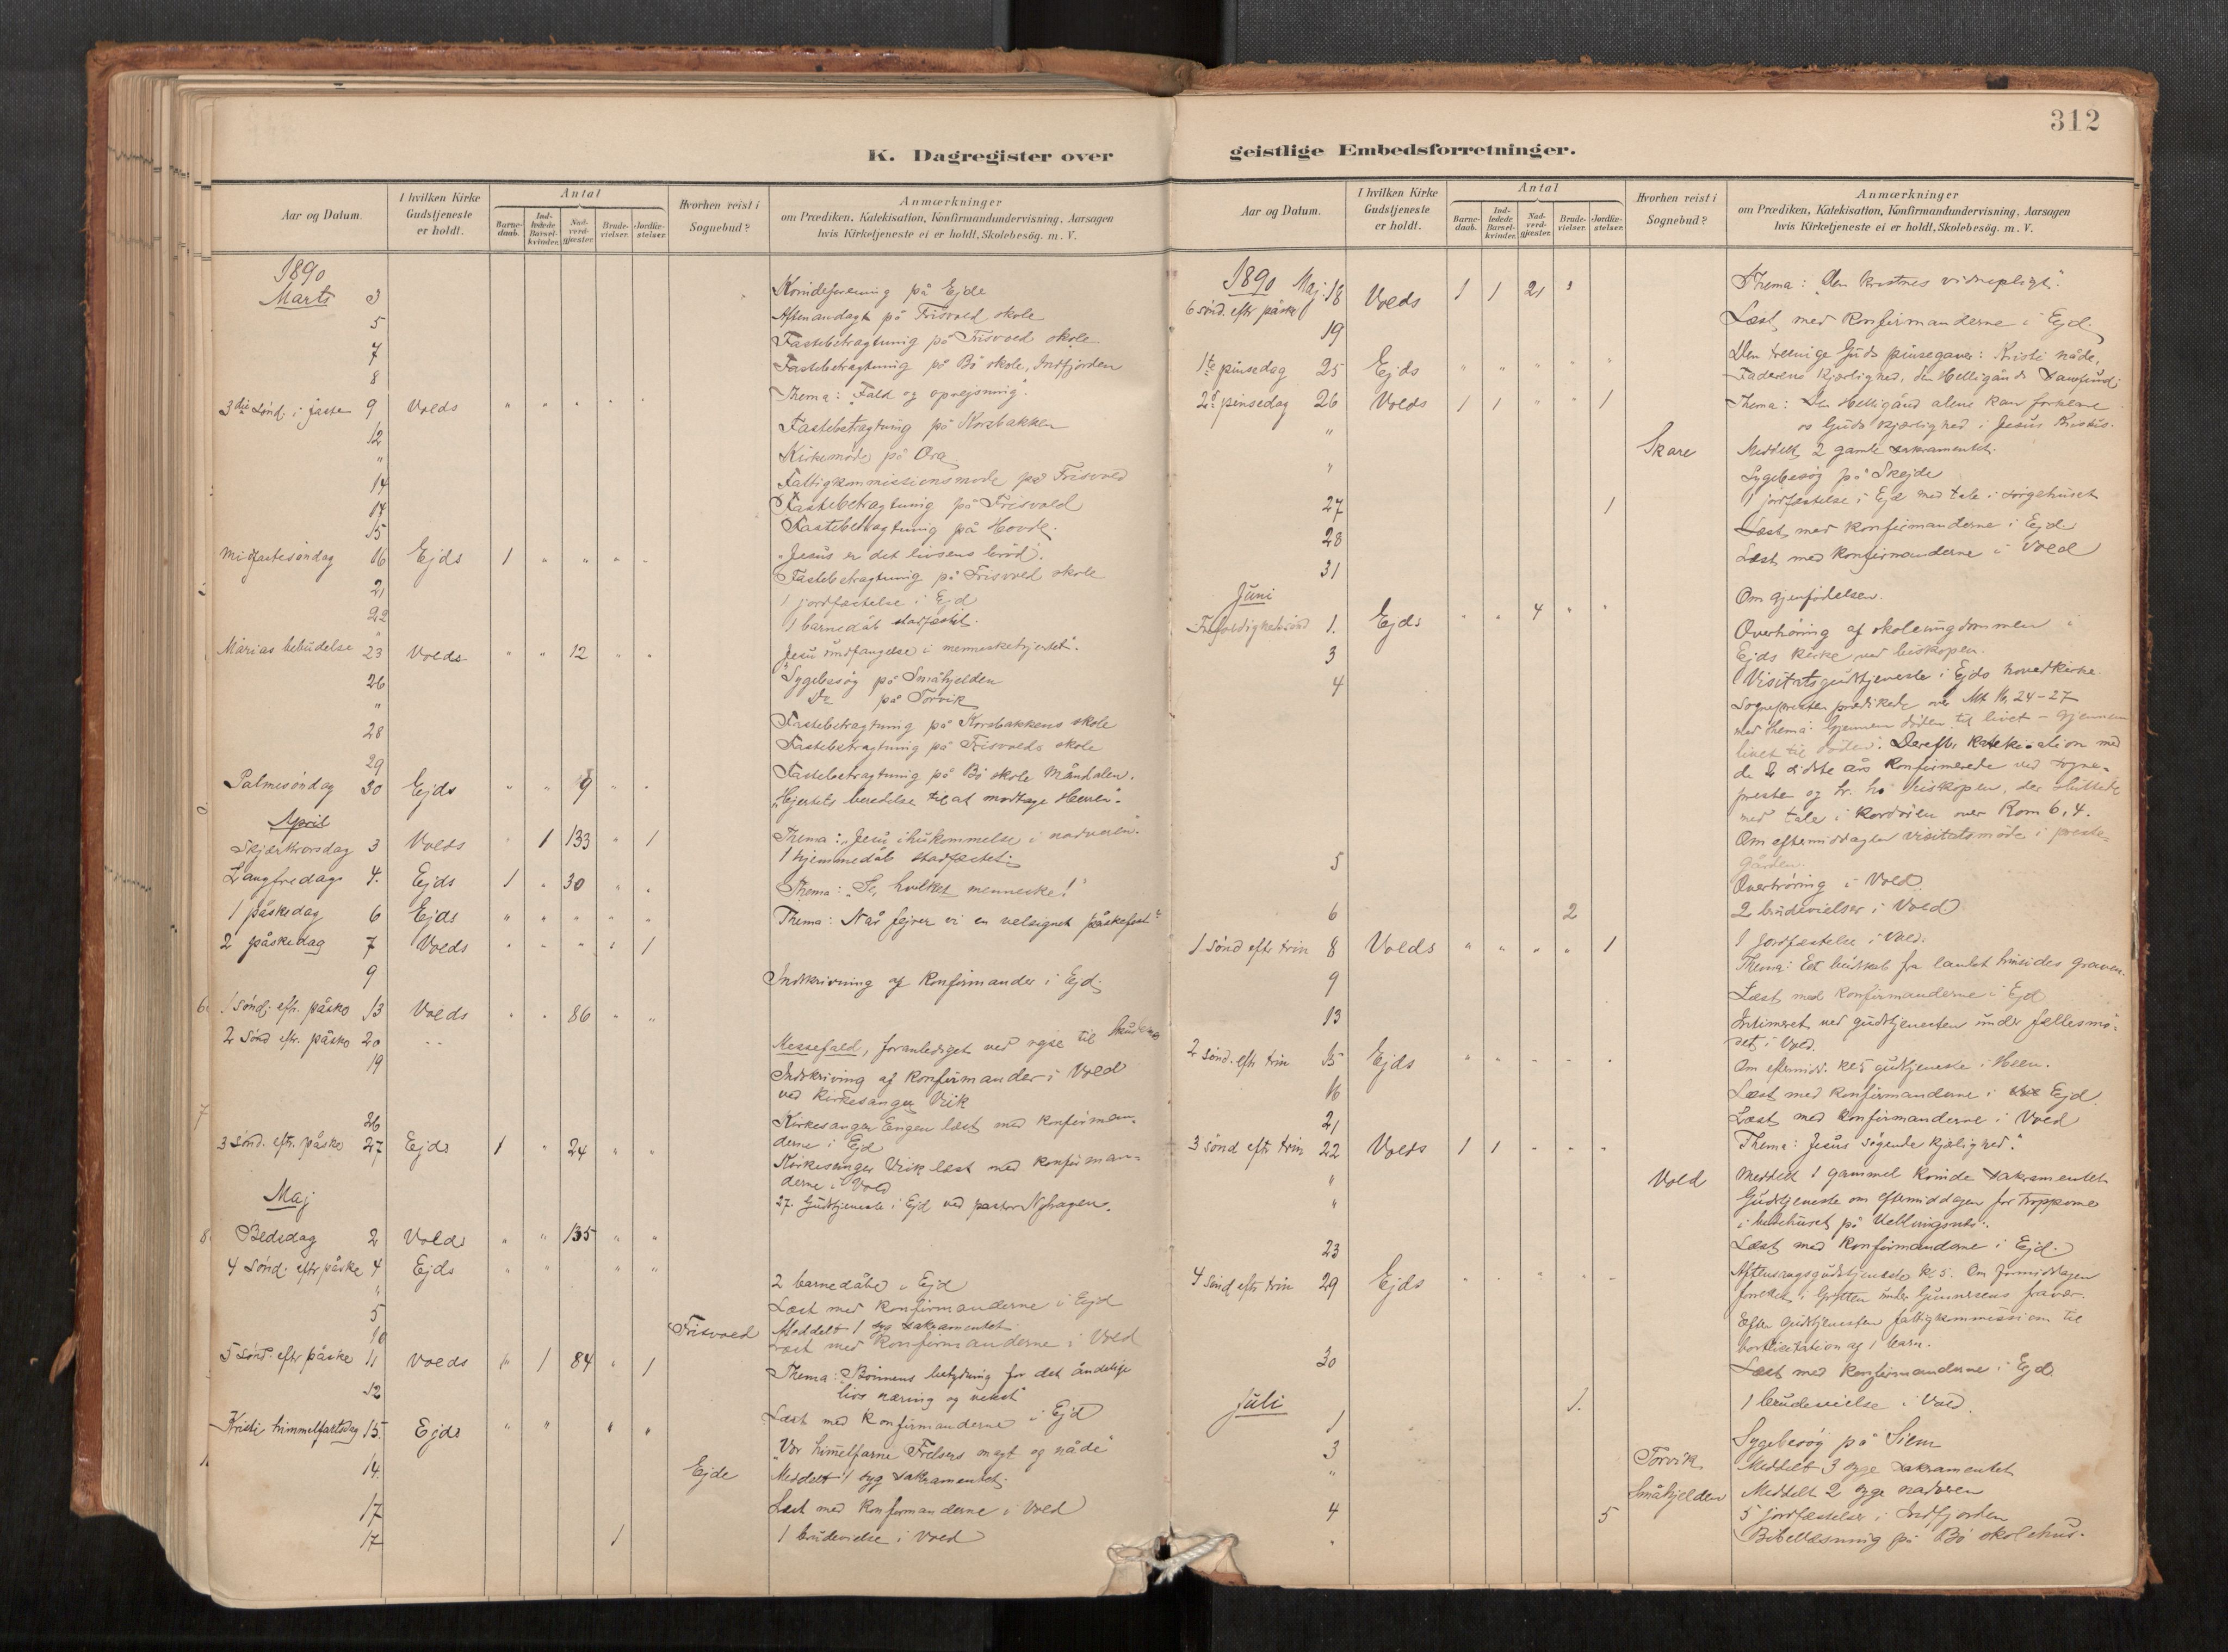 312
K. Dagregister over geistlige Embedsforretninger.
Aar og Datum. I hvilken Kirke Gudstjeneste er holdt. Antal Barne-daab. Ind-ledede Barsel-kvinder. Nad-verd-gjæster. Brude-vielser. Jordfæ-stelser. Hvorhen reist i Sognebud? Anmærkninger om Prædiken, Katekisation, Konfirmandundervisning, Aarsagen hvis Kirketjeneste ei er holdt, Skolebesög. m. V.
1890
Marts 3 Kvindeforening på Ejde
5 Aftenandagt på Frisvold skole
7 Fastebetragtning på Frisvold skole
8 Fastebetragtning på Bö skole, Indfjorden
3die sönd. i fasten 9 Volds " " " " " Thema: "Fald og oprejsning".
12 Fastebetragtning på Korsbakken
" Kirkemöde på Öra
14 Fattigkommissionsmöde på Frisvold
14 Fastebetragtning på Frisvold
15 Fastebetragtning på Hovde.
Midfastesöndag 16 Ejds 1 " " " " "Jesus er det livsens bröd".
21 Fastebetragtning på Frisvold skole
22 1 jordfæstelse i Ejd
" 1 barnedåb stadfæstet.
Marias bebudelse 23 Volds " " 12 " " Jesu undfangelse i menneskehjertet".
26 Sygebesög på Småhjelden
" Do på Torvik
28 Fastebetragtning på Korsbakkens skole
29 Fastebetragtning på Frisvolds skole
Fastebetragtning på Bö skole Måndalen.
Palmesöndag 30 Ejds " " 9 " " "Hjertets beredelse til at modtage Herren".
April
Skjærthorsdag 3 Volds " 1 133 " 1 Thema: "Jesu ihukommelse i nadveren".
1 hjemmedåb stadfæstet.
Langfredag 4. Ejds 1 " 30 " " Thema: "Se, hvilket menneske!"
1 påskedag 6 Ejds " " " " " Thema: Når fejrer vi en velsignet påskefest"
2 påskedag 7 Volds " " " " 1
9 Indskrivning af konfirmander i Ejd.
1 sönd. eft. påske 13 Volds " " 86 " "
2 sönd eft. påske 20 Messefald, foranlediget ved rejse til
19 Indskriving af konfirmander i Vold
ved kirkesanger Vik
26 Kirkesanger Engen læst med konfirman-
derne i Ejd
3 sönd. eft. påske 27 Ejds 1 " 24 " " Kirkesanger Vik læst med konfirman-
derne i Vold
27. Gudstjeneste i Ejd ved pastor Nyhagen.
Maj
Bededag 2 Volds " " 135 " "
4 sönd. eftr påske 4 Ejds " " " "
" 2 barnedåb i Ejd
5 Læst med konfirmanderne i Ejd
Frisvold Meddelt 1 syg sakramentet.
10 Læst med konfirmanderne i Vold
5 sönd. eftr påske 11 Volds " 1 84 " 1 Thema: Bönnens betydning for det åndelige
livs næring og vekst"
12 Læst med konfirmanderne i Ejd
Kristi himmelfartsdag 15. Ejds " " " " "Vor himmelfarne Frelsers magt og nåde"
14. Ejde Meddelt 1 syg sakramentet.
17 Læst med konfirmanderne i Vold
17 1 1 brudevielse i Vold
Aar og Datum. I hvilken Kirke Gudstjeneste er holdt. Antal Barne-daab. Ind-ledede Barsel-kvinder. Nad-verd-gjæster. Brude-vielser. Jordfæ-stelser. Hvorhen reist i Sognebud? Anmærkninger om Prædiken, Katekisation, Konfirmandundervisning, Aarsagen hvis Kirketjeneste ei er holdt, Skolebesög. m. V.
1890 Maj 18
6 sönd. eftr påske Volds 1 1 21 " Thema: "Den kristnes vidnepligt".
19 Læst med konfirmanderne i Ejd.
1te pinsedag 25 Ejds " " " " " Den treenige Guds pinsegaver: Kristi nåde,
Faderens kjærlighed, den Helligånds samfund.
2d pinsedag 26 Volds 1 1 " " 1 Thema: Den Helligånd alene kan forklare
os Guds kjærlighed i Jesus Kristus.
" Skare Meddelt 2 gamle sakramentet.
" Sygebesög på Skejde
27 1 1 jordfæstelse i Ejd med tale i sörgehuset
28 Læst med konfirmanderne i Ejd
31 Læst med konfirmanderne i Vold
Juni
Trefoldighedssönd 1. Ejds " " 4 " " Om gjenfödelsen.
3 Overhöring af skoleungdommen i
Ejds kirke ved biskopen.
4 Visitatsgudstjeneste i Ejds hovedkirke.
Sognepresten prædikede over Mt 16, 24-27
med thema: Gjennem döden til livet - gjennem
livet til döden". Derefter katekisation med
de 2 sidste års konfirmerede ved sogne-
presten og hr. biskopen, der sluttede
med tale i kordören over Rom 6, 4.
Om eftermiddagen visitatsmöde i preste-
gården.
5 Overhöring i Vold
6 2 2 brudevielser i Vold
1 sönd eftr trin 8 Volds " " " " 1 1 jordfæstelse i Vold.
Thema: Et budskab fra landet hinsides graven.
9 Læst med konfirmanderne i Ejd
13 Intimeret ved gudstjenesten under fællesmö-
det i Vold.
2 sönd. eftr trin 15 Ejds " " " " " Om eftermidd. kl 5 gudstjeneste i Heen.
16 Læst med konfirmanderne i Ejd
21 Læst med konfirmanderne i Vold
3 sönd eftr trin 22 Volds 1 1 " " " Thema: Jesus sögende kjærlighed".
" Vold Meddelt 1 gammel kvinde sakramentet
" Gudstjeneste om eftermiddagen for tropperne
i bedehuset på
23 Læst med konfirmanderne i Ejd.
4 sönd eftr trin 29 Ejds " " " " " Aftensangsgudstjeneste kl 5. Om formiddagen
forrettet i Grytten under Gunnersens fravær.
Efter gudstjenesten fattigkommission til
bortlicitation af 1 barn.
30 Læst med konfirmanderne i Ejd
Juli 1 1. 1 brudevielse i Vold
3 Sygebesög på Siem
" Torvik Meddelt 3 syge sakramentet
Småhjelden Meddelt 2 syge nadveren
4 5 5 jordfæstelser i Indfjorden
" Bibellæsning på Bö skolehus.